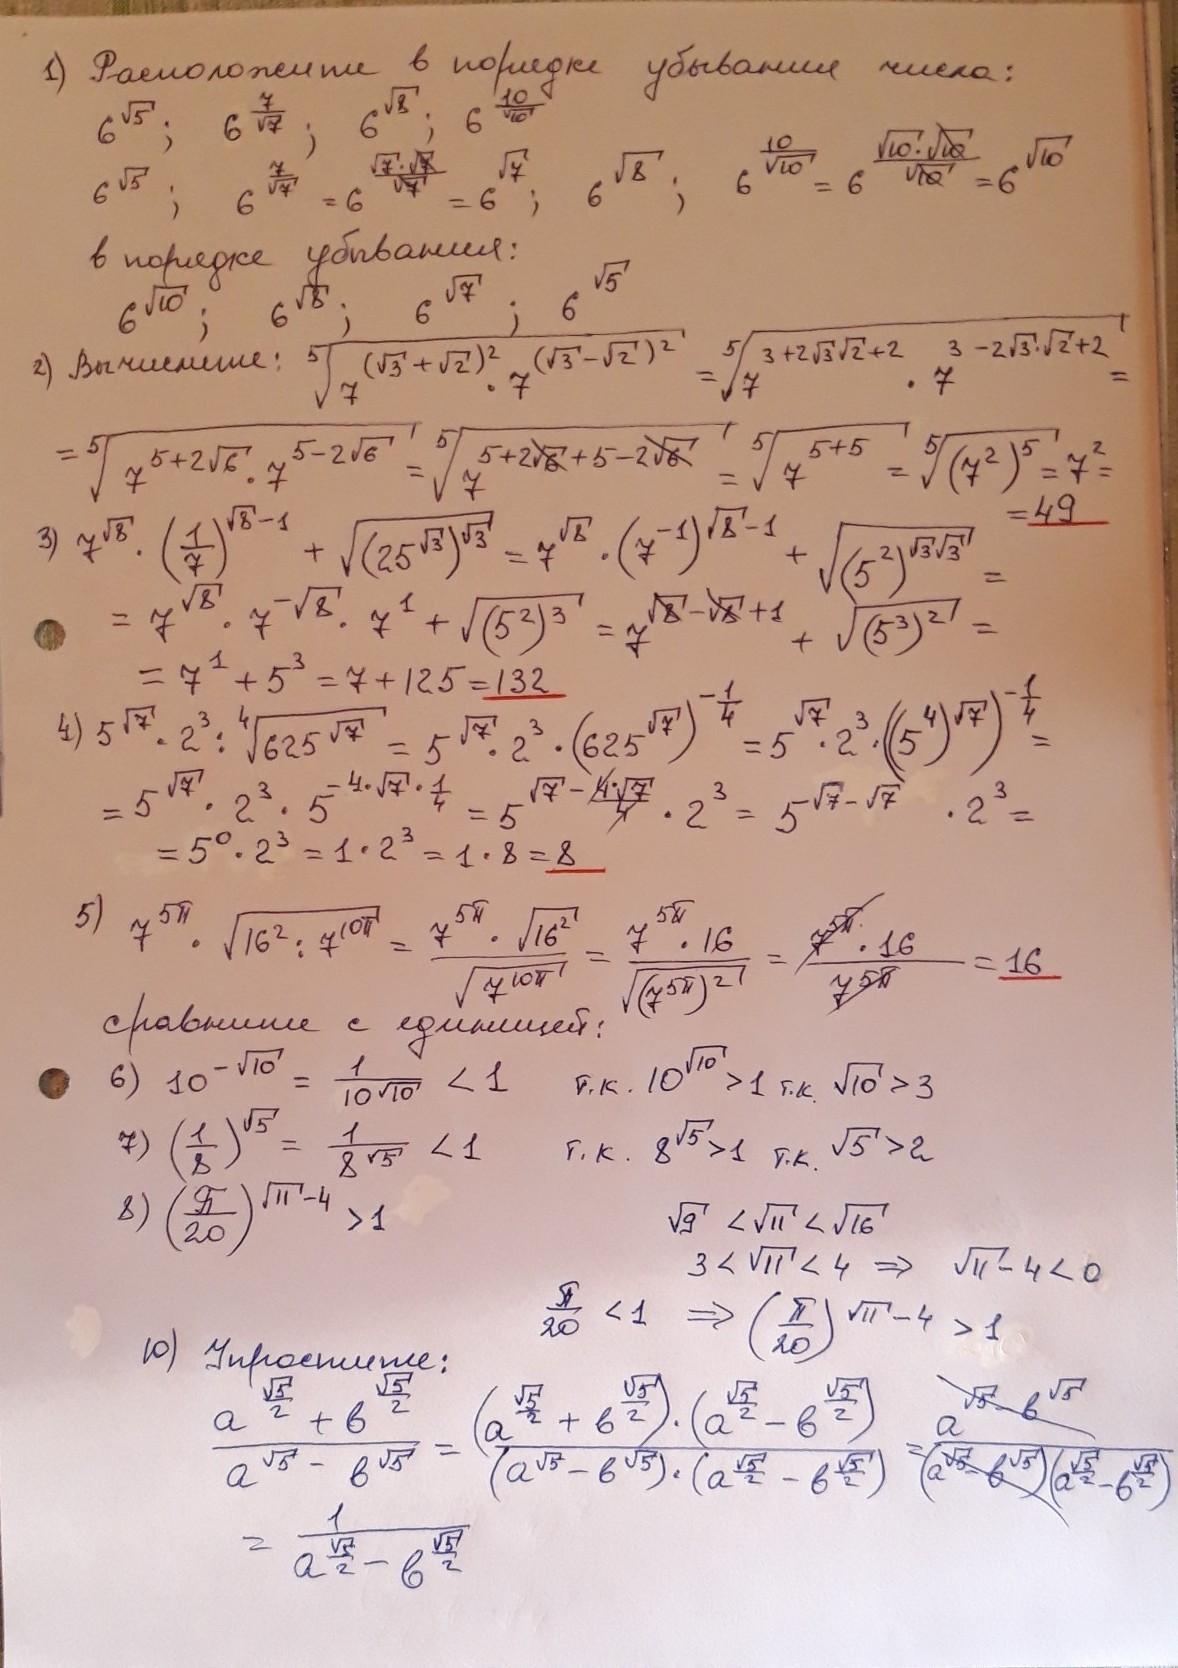 1) Расположите в порядке убывания числа:
6^√5; 6^(7/√7); 6^√8; 6^(10/√10)
6^√5; 6^(7/√7) = 6^(√7·√7/√7) = 6^√7; 6^√8; 6^(10/√10) = 6^(√10·√10/√10) = 6^√10
в порядке убывания:
6^√10; 6^√8; 6^√7; 6^√5
2) Вычислите: ⁵√(7^(√3+√2)² · 7^(√3-√2)²) = ⁵√(7^(3+2√3√2+2) · 7^(3-2√3·√2+2)) =
= ⁵√(7^(5+2√6) · 7^(5-2√6)) = ⁵√(7^(5+2√6+5-2√6)) = ⁵√(7^(5+5)) = ⁵√((7²)⁵) = 7² =
= 49
3) 7^√8 · (1/7)^(√8-1) + √((25^√3)^√3) = 7^√8 · (7^(-1))^(√8-1) + √((5²)^(√3√3)) =
= 7^√8 · 7^(-√8) · 7^1 + √((5²)³) = 7^(√8-√8+1) + √((5³)²) =
= 7^1 + 5³ = 7 + 125 = 132
4) 5^√7 · 2³ : ⁴√(625^√7) = 5^√7 · 2³ · (625^√7)^(-1/4) = 5^√7 · 2³ · ((5⁴)^√7)^(-1/4) =
= 5^√7 · 2³ · 5^(-4·√7·1/4) = 5^(√7 - 4·√7/4) · 2³ = 5^(√7-√7) · 2³ =
= 5⁰ · 2³ = 1 · 2³ = 1 · 8 = 8
5) 7^(5π) · √(16² : 7^(10π)) = (7^(5π) · √(16²))/√(7^(10π)) = (7^(5π) · 16)/√((7^(5π))²) = (7^(5π) · 16)/7^(5π) = 16
сравните с единицей:
6) 10^(-√10) = 1/10^√10 < 1 т.к. 10^√10 > 1 т.к. √10 > 3
7) (1/8)^√5 = 1/8^√5 < 1 т.к. 8^√5 > 1 т.к. √5 > 2
8) (π/20)^(√11-4) > 1 √9 < √11 < √16
3 < √11 < 4 ⇒ √11 - 4 < 0
π/20 < 1 ⇒ (π/20)^(√11-4) > 1
10) Упростите:
(a^(√5/2) + b^(√5/2))/(a^√5 - b^√5) = ((a^(√5/2) + b^(√5/2))·(a^(√5/2) - b^(√5/2)))/((a^√5 - b^√5)·(a^(√5/2) - b^(√5/2))) = (a^√5 - b^√5)/((a^√5 - b^√5)(a^(√5/2) - b^(√5/2)))
= 1/(a^(√5/2) - b^(√5/2))